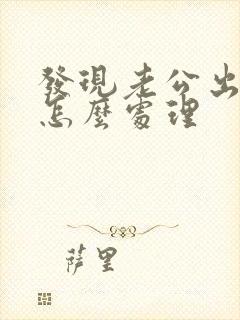 發現老公出
怎麼處理
萨里